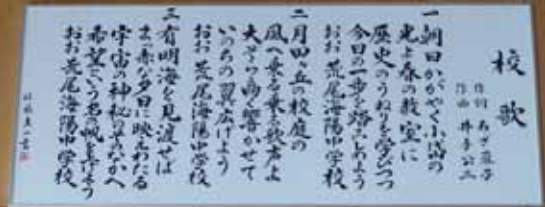 校歌
作詞 あざ 庭子
作曲 井手公二
一 朝日かがやく小岱の
光よ春の教室に
歴史のうねりを学びつつ
今日の一歩を踏みしめよう
おお 荒尾海陽中学校
二 月田ヶ丘の校庭の
風へ乗る乗る歌声よ
大ぞら高く響かせて
いのちの翼広げよう
おお 荒尾海陽中学校
三 有明海を見渡せば
まっ赤な夕日に映えわたる
宇宙の神秘のまなかへ
希望という名の帆をあげよう
おお 荒尾海陽中学校